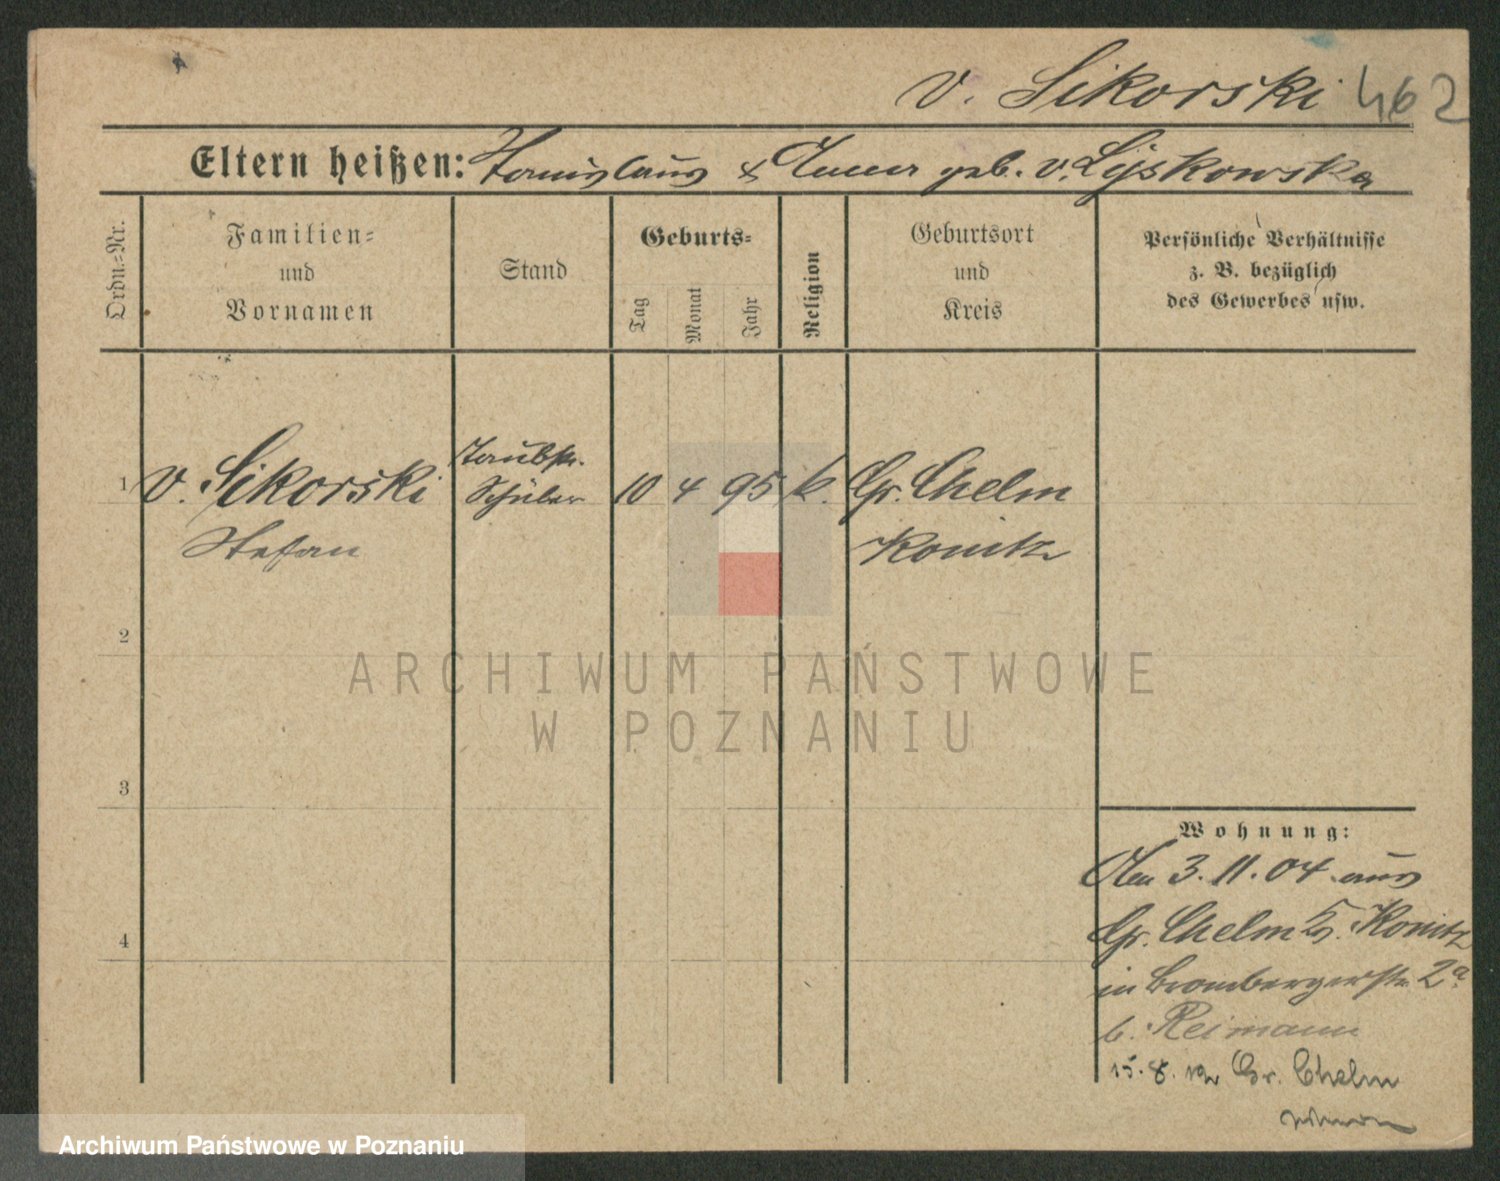 v. Sikorski 462
Eltern heißen: Stanislaus & Anna geb. v. Lyskowska
Ordn.=Nr.
Familien=
und
Vornamen
Stand
Geburts=
Tag
Monat
Jahr
Religion
Geburtsort
und
Kreis
Persönliche Verhältnisse
z. B. bezüglich
des Gewerbes usw.
1 v. Sikorski Taubst. Schüler 10 4 95 k. Gr. Chelm
Stefan Konitz
2
3
4
Wohnung:
Am 3.11.04 aus
Gr. Chelm K. Konitz
in Brombergerstr. 2a
b. Reimann
15.8. Gr. Chelm
ARCHIWUM PAŃSTWOWE
W POZNANIU
Archiwum Państwowe w Poznaniu